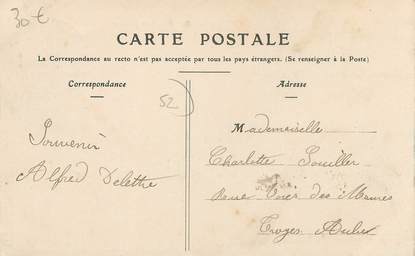 30€
CARTE POSTALE
La Correspondance au recto n'est pas acceptée par tous les pays étrangers. (Se renseigner à la Poste)
Correspondance
Adresse
52
Souvenir
Alfred Delettre
Mademoiselle
Charlotte
rue des
Troyes Aube